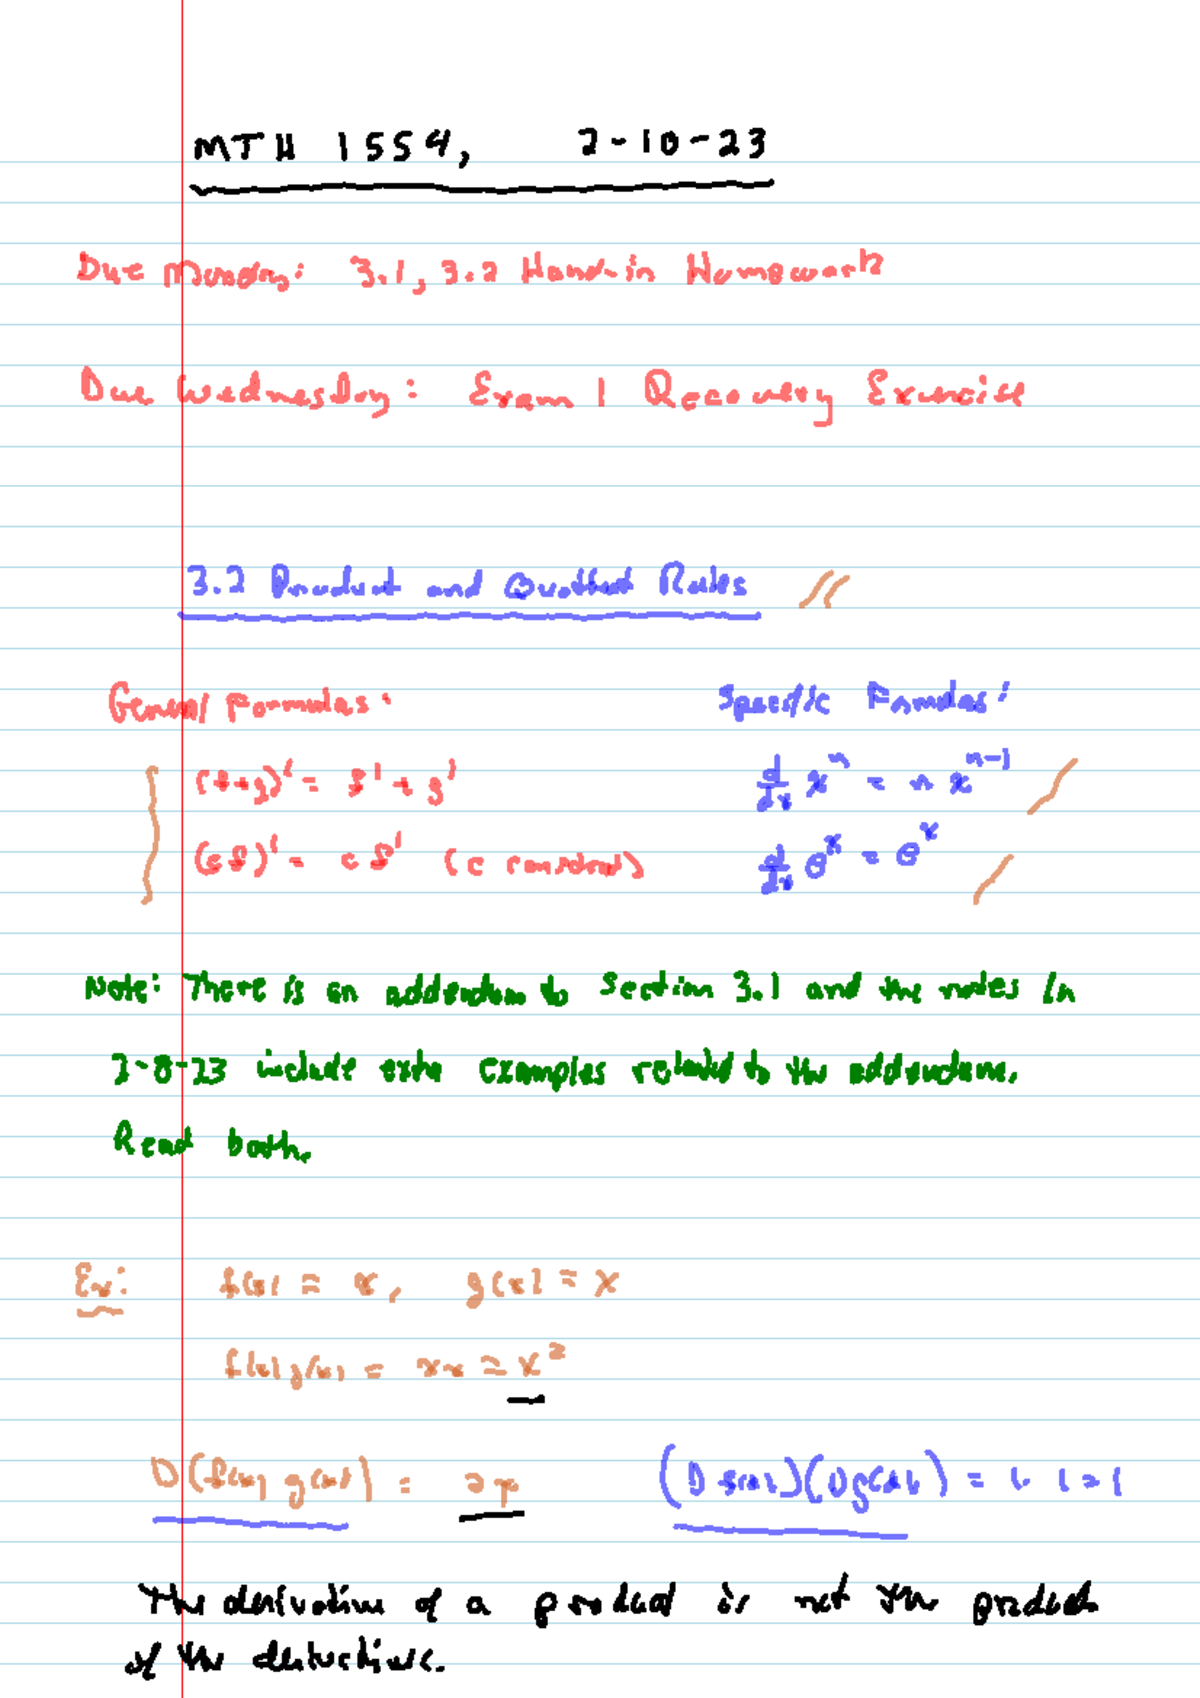 MTH 1554, 2-10-23
Due Monday: 3.1, 3.2 Hand-in Homework
Due Wednesday: Exam 1 Recovery Exercise
3.2 Product and Quotient Rules
General Formulas: Specific Formulas:
(f+g)' = f' + g' d/dx x^n = n x^{n-1}
(cf)' = c f' (c constant) d/dx e^x = e^x
Note: There is an addendum to Section 3.1 and the notes in
2-8-23 include extra examples related to the addendum.
Read both.
Ex: f(x) = x, g(x) = x
f(x)g(x) = xx = x²
D(f(x) g(x)) = 2x (D f(x))(D g(x)) = 1 · 1 = 1
The derivative of a product is not the product
of the derivatives.